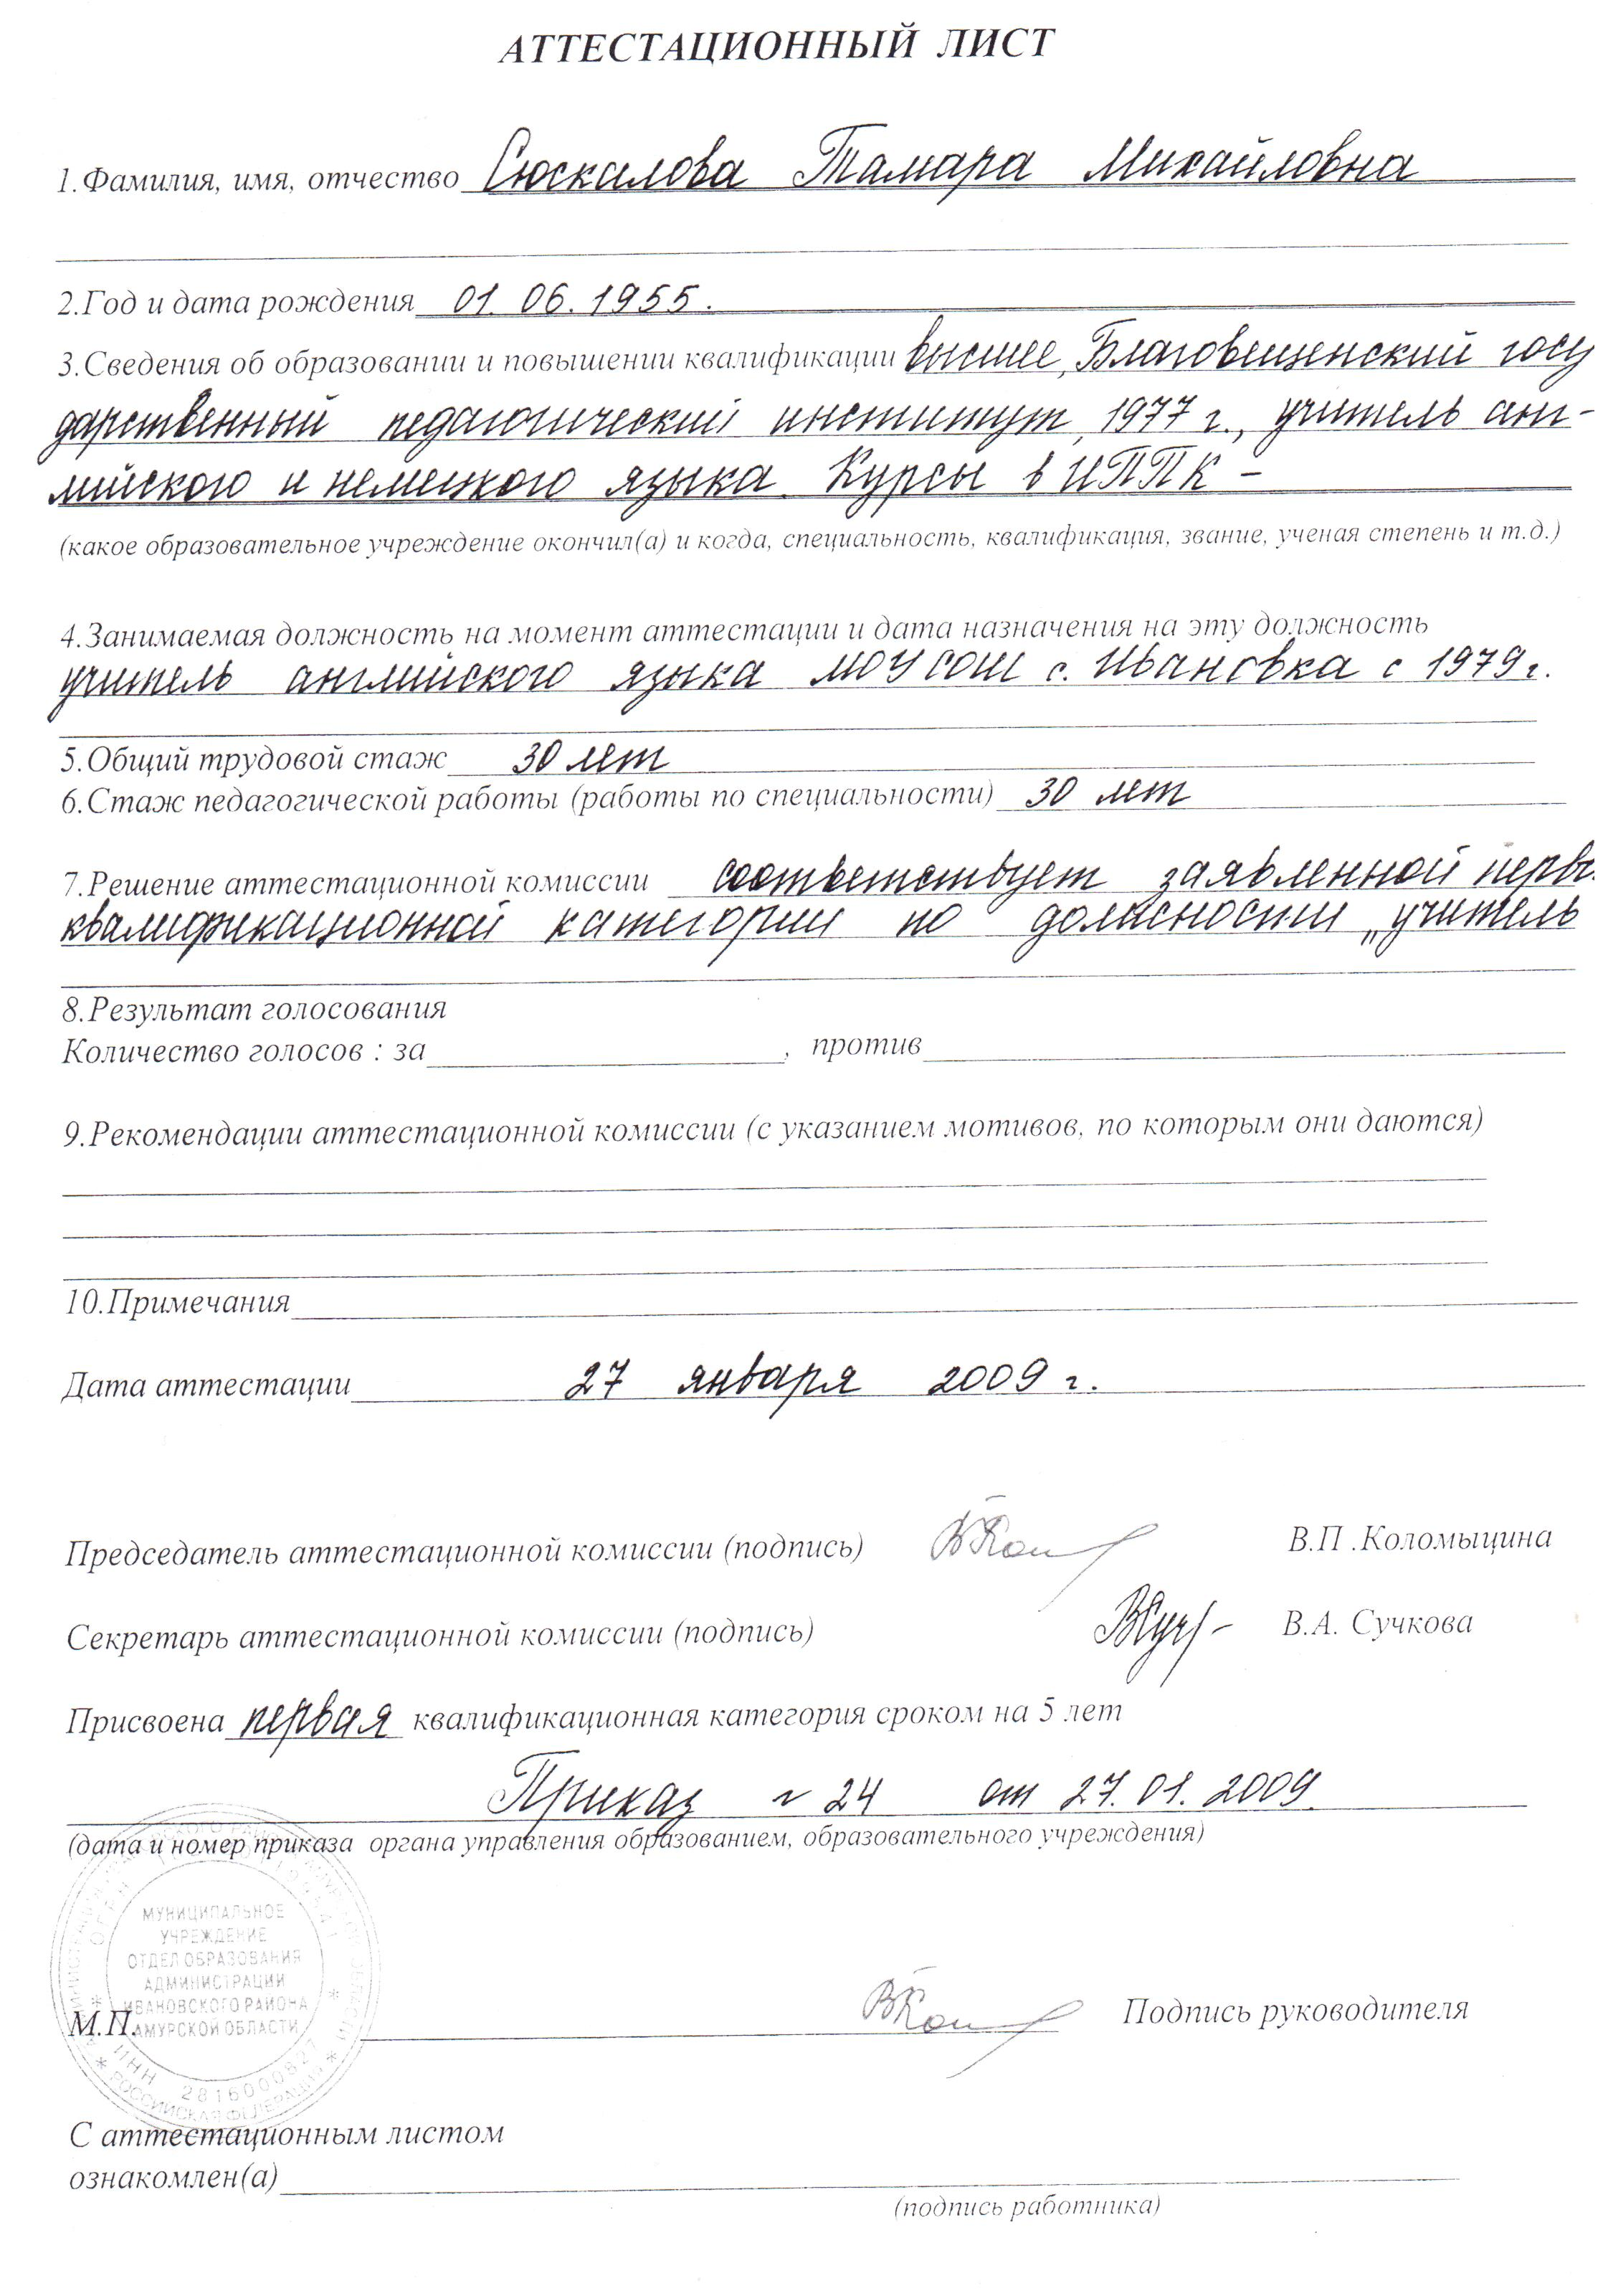 АТТЕСТАЦИОННЫЙ ЛИСТ
1.Фамилия, имя, отчество Сюскалова Тамара Михайловна
2.Год и дата рождения 01. 06. 1955.
3.Сведения об образовании и повышении квалификации высшее, Благовещенский госу
дарственный педагогический институт, 1977 г., учитель анг-
лийского и немецкого языка. Курсы в ИППК –
(какое образовательное учреждение окончил(а) и когда, специальность, квалификация, звание, ученая степень и т.д.)
4.Занимаемая должность на момент аттестации и дата назначения на эту должность
учитель английского языка МОУ СОШ с. Ивановка с 1979 г.
5.Общий трудовой стаж 30 лет
6.Стаж педагогической работы (работы по специальности) 30 лет
7.Решение аттестационной комиссии соответствует заявленной первы
квалификационной категории по должности „учитель
8.Результат голосования
Количество голосов : за , против
9.Рекомендации аттестационной комиссии (с указанием мотивов, по которым они даются)
10.Примечания
Дата аттестации 27 января 2009 г.
Председатель аттестационной комиссии (подпись) В.П .Коломыцина
Секретарь аттестационной комиссии (подпись) В.А. Сучкова
Присвоена первая квалификационная категория сроком на 5 лет
Приказ № 24 от 27. 01. 2009.
(дата и номер приказа органа управления образованием, образовательного учреждения)
МУНИЦИПАЛЬНОЕ
УЧРЕЖДЕНИЕ
ОТДЕЛ ОБРАЗОВАНИЯ
АДМИНИСТРАЦИИ
ИВАНОВСКОГО РАЙОНА
АМУРСКОЙ ОБЛАСТИ
ИНН 2816000827
РОССИЙСКАЯ ФЕДЕРАЦИЯ
М.П. Подпись руководителя
С аттестационным листом
ознакомлен(а)
(подпись работника)